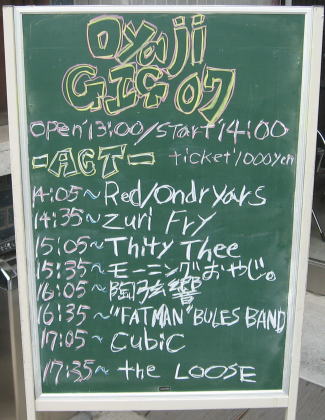 Oyaji
GIG 07
open 13:00/start 14:00
-ACT- ticket 1000yen
14:05~Red/Ondryoars
14:35~Zuri Fry
15:05~Thity Thee
15:35~モーニングおやじ。
16:05~陶弦響
16:35~"FATMAN" BULES BAND
17:05~cubic
17:35~the LOOSE